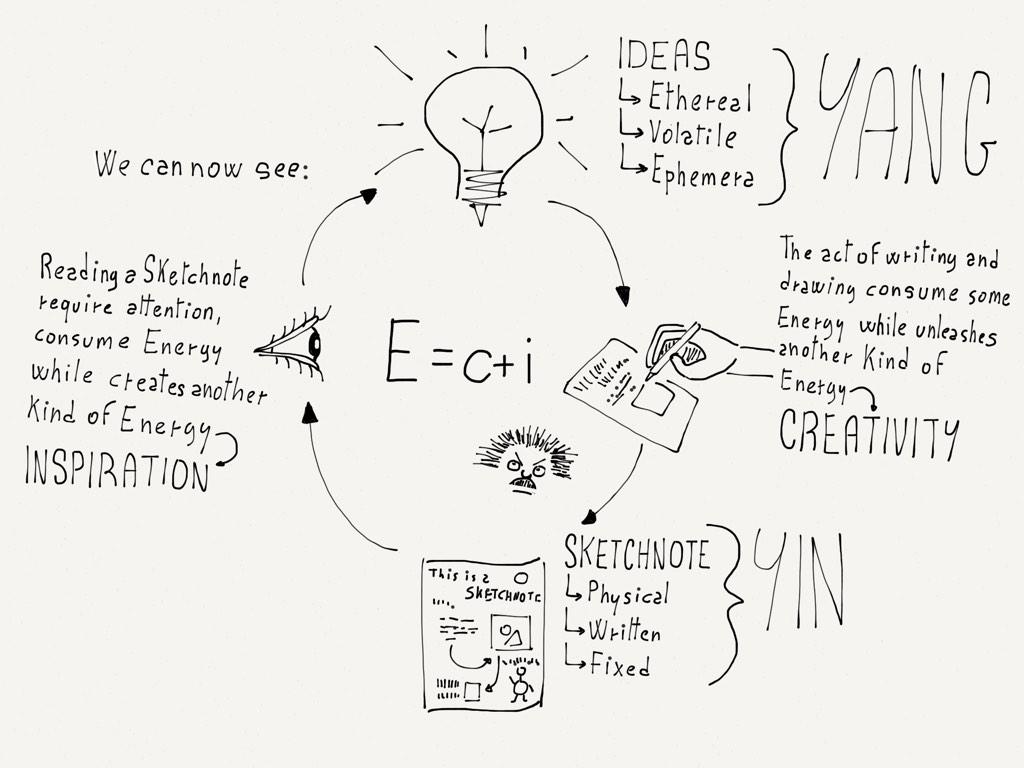 IDEAS
Ethereal
Volatile
Ephemera
YANG
We can now see:
The act of writing and
drawing consume some
Energy while unleashes
another Kind of
Energy
CREATIVITY
Reading a Sketchnote
require attention,
consume Energy
while creates another
Kind of Energy
INSPIRATION
E = c+i
SKETCHNOTE
Physical
Written
Fixed
YIN
This is a
SKETCHNOTE